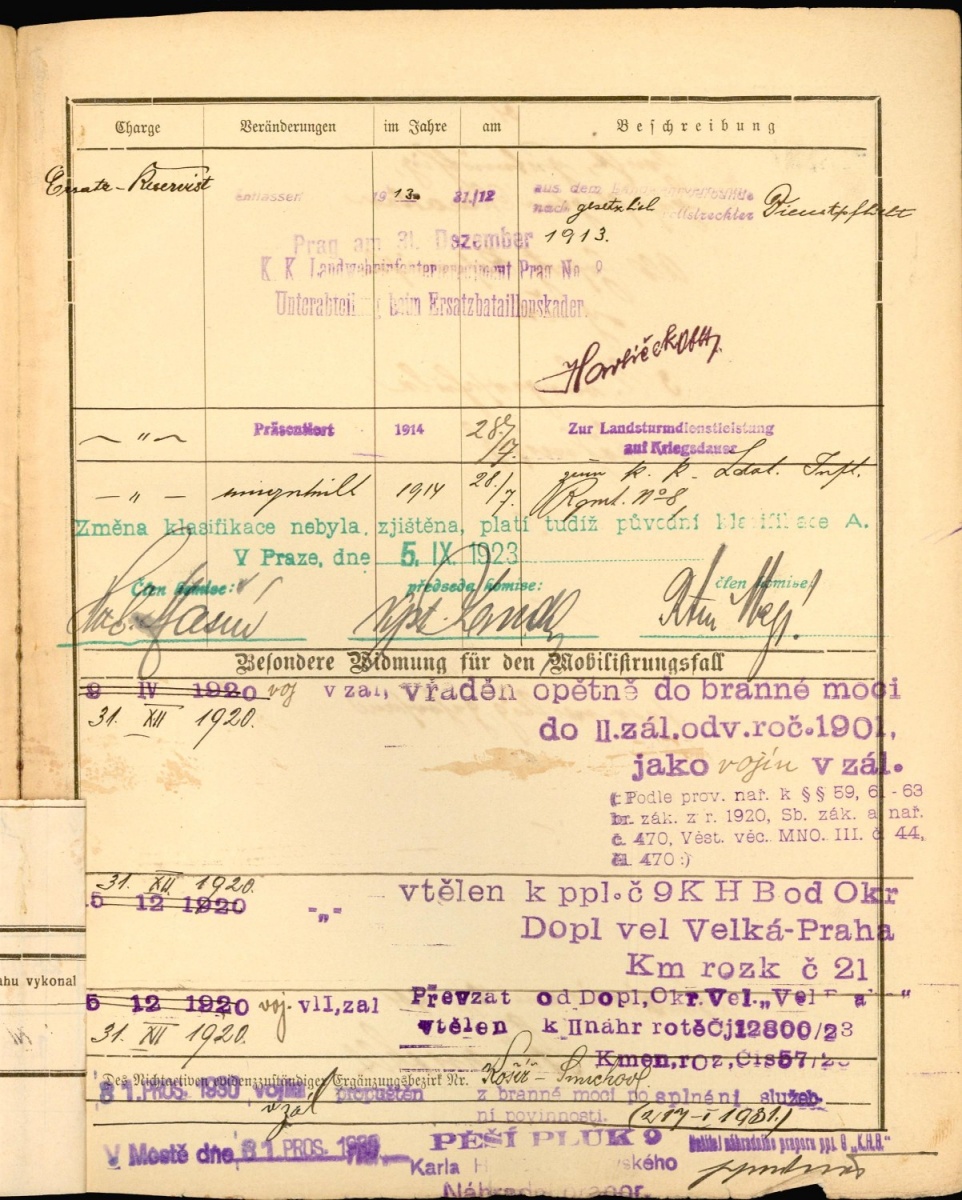 Charge Veränderungen im Jahre am Beschreibung
Ersatz-Reservist entlassen 1913 31./12 aus dem
nach gesetzlich vollstreckter Dienstpflicht
Prag am 31. Dezember 1913.
K K Landwehrinfanterieregiment Prag No 8
Unterabteilung beim Ersatzbataillonskader.
— " — Präsentiert 1914 28./7. Zur Landsturmdienstleistung
auf Kriegsdauer
— " — 1914 28./7. zum k. k. Ldst. Inft.
Rgmt. No 8,
Změna klasifikace nebyla zjištěna, platí tudíž původní klasifikace A.
V Praze, dne 5. IX. 1923
Člen komise: předseda komise: člen komise:
Besondere Widmung für den Mobilisirungsfall
9 IV 1920 voj v zál, vřaděn opětně do branné moci
31. XII 1920. do II.zál.odv.roč.1901,
jako vojín v zál.
(: Podle prov. nař. k §§ 59, 61-63
br. zák. z r. 1920, Sb. zák. a nař.
č. 470, Věst. věc. MNO. III. č. 44,
čl 470 :)
31. XII 1920.
5 12 1920 "„" vtělen k ppl.č 9 K H B od Okr
Dopl vel Velká-Praha
Km rozk č 21
5 12 1920 voj. vII,zál Převzat od Dopl,Okr.Vel.
31. XII 1920. vtělen k II náhr rotě Čj12800/23
Kmen,roz,Čís57/
Des Nichtactiven evidenzzuständiger Ergänzungsbezirk Nr. Košíř - Smichov
31. PROS. 1930 vojín propuštěn z branné moci po splnění služeb-
v zál ní povinnosti. (217-I 1931.)
V Mostě dne, 31 PROS. 1930 PĚŠÍ PLUK 9 Velitel náhradního praporu ppl. 9 „K.H.B."
Karla
Náhradní prapor.
ahu vykonal